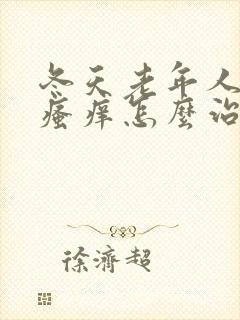 冬天老年人
瘙痒怎麼治
徐濟超